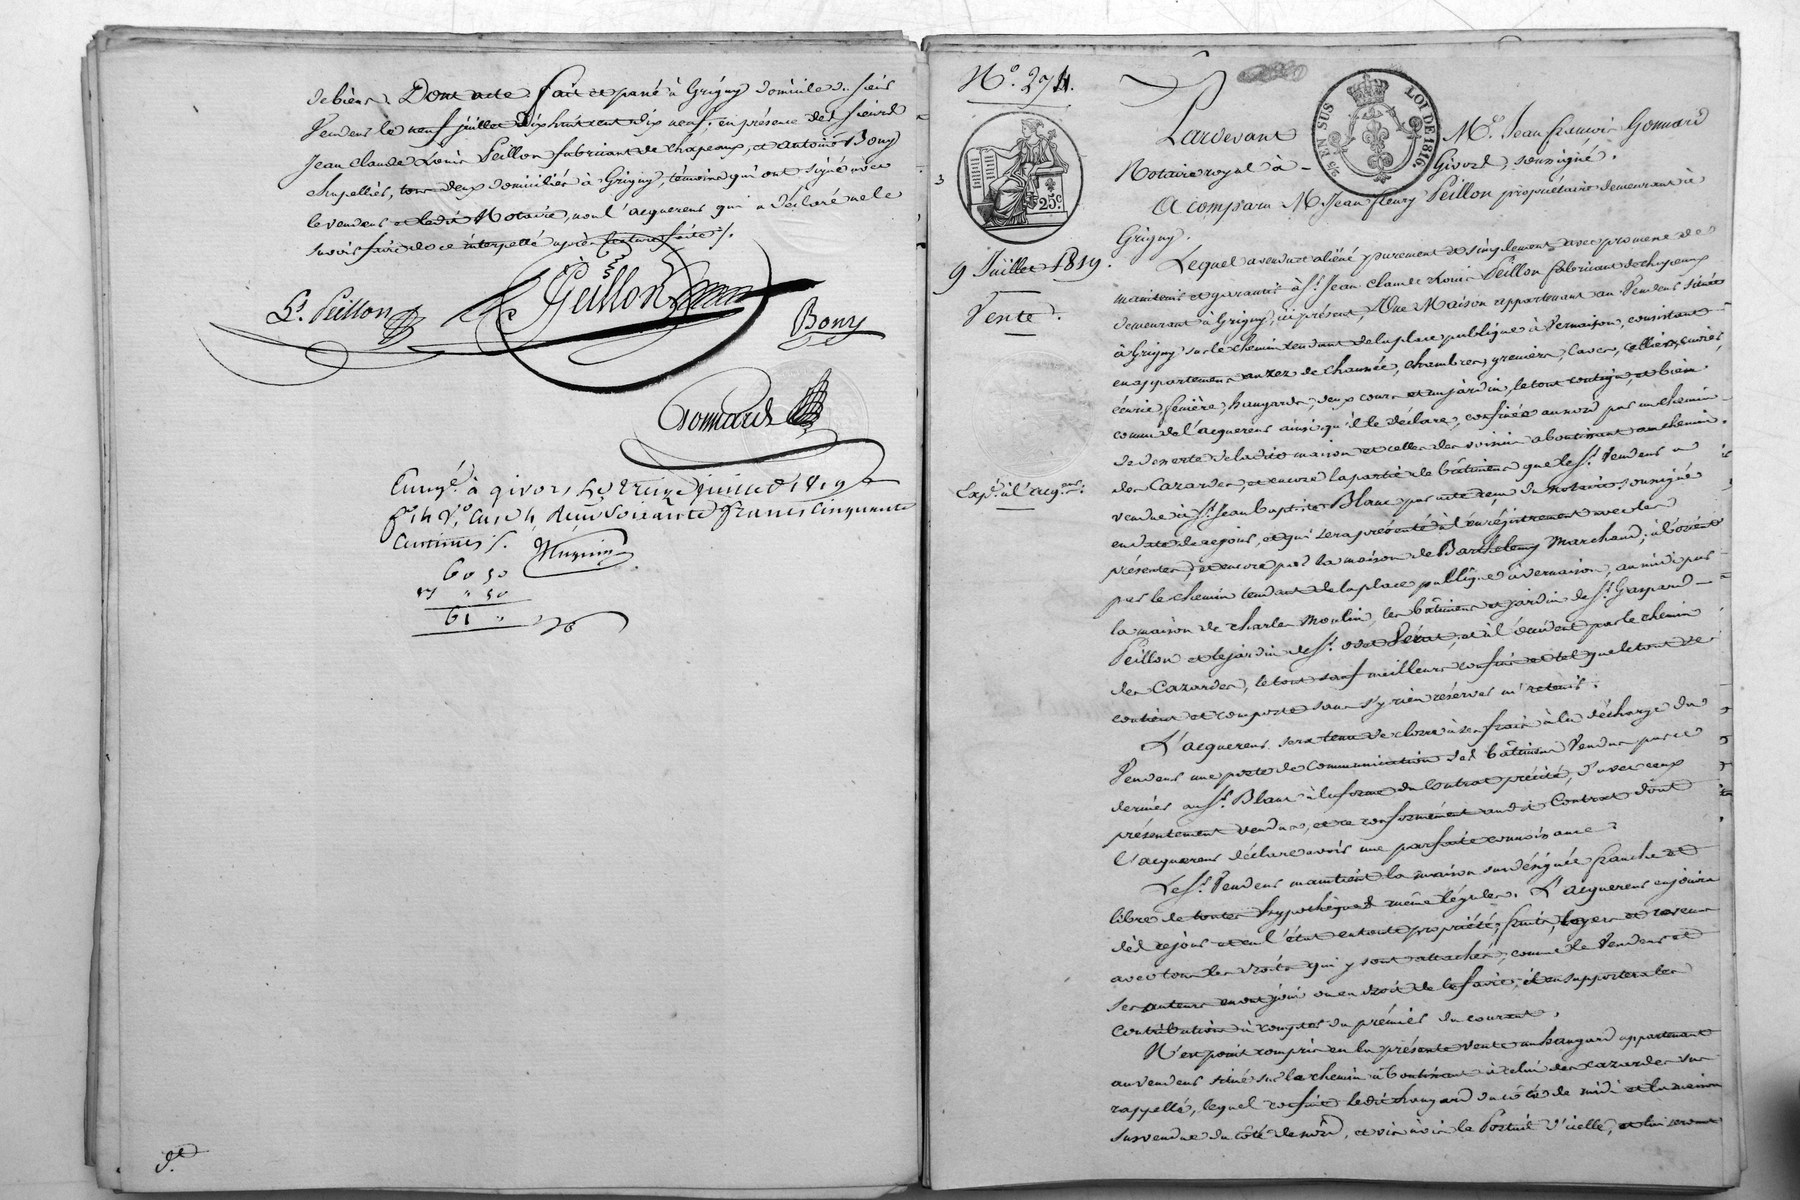 de biens. Dont acte fait et passé à Grigny domicile du sieur
Vendeur le neuf juillet dix huit cent dix neuf, en présence des sieurs
Jean Claude Louis Peillon fabricant de chapeaux, et antoine Bony
chapellier, tous deux domiciliés à Grigny, témoins qui ont signé avec
le vendeur et ledit Notaire, non l'acquereur qui a déclaré ne le
savoir faire de ce interpellé après lecture faite ./.
Ls. Peillon
Peillon
Bony
Gonnard
Enregé. à givors, Le treize juillet 1819
fo. 14 Vo. Case 4, Reçu Soixante francs Cinquante
Centimes ./.
60 50
" 50
61 "
No. 274.
Pardevant
Me. Jean françois Gonnard
Notaire royal à
Givors, soussigné.
5/25 EN SUS
LOI DE 1816
25c
A comparu M. Jean fleury Peillon propriétaire demeurant à
Grigny.
9 Juillet 1819.
Vente.
Lequel a vendu et aliéné purement et simplement avec promesse de
maintenir et garantir à Sr. Jean Claude Louis Peillon fabricant de chapeaux
demeurant à Grigny, ici présent, Une Maison appartenant au Vendeur située
à Grigny sur le chemin tendant de la place publique à Vernaison, consistant
en appartemens au rez de chaussée, chambres, greniers, caves, cellier, cuvier,
écurie, feniére, hangards, deux cours et un jardin, le tout contigu, et bien
connu de l'acquereur ainsi qu'il le déclare, confinés au nord par un chemin
de desserte de ladite maison et celles des voisins aboutissant au chemin
des Cazardes, et encore la partie de bâtimens que le Sr. Vendeur a
Expon. à l'acqeur.
vendue à Sr. Jean baptiste Blanc par acte reçu du notaire soussigné
en date de ce jour, et qui sera présenté à l'enregistrement avec les
présentes, et encore par la maison de Barthelemy Marchand; à l'orient
par le chemin tendant de la place publique à vernaison, au midi par
la maison de charles Moulin, les bâtimens et jardin de Sr. Gaspard
Peillon et le jardin de Sr. Odet Pérat, et à l'occident par le chemin
des Cazardes, le tout sauf meilleurs confins et tel que le tout se
contient et comporte sans s'y rien réserver ni retenir.
L'acquereur sera tenu de clorre à ses frais à la décharge du
Vendeur une porte de communication des bâtimens Vendus par ce
dernier au Sr. Blanc à la forme du Contrat précité, d'avec ceux
présentement vendus, et ce conformément audit Contrat dont
l'acquereur déclare avoir une parfaite connoissance.
Le Sr. Vendeur maintient la maison sus désignée franche et
libre de toutes hypothèques même légales. L'acquereur en jouira
dès ce jour et en l'état en toute propriété, fruits, loyers et revenus
avec tous les droits qui y sont attachés, comme le Vendeur et
ses auteurs en ont joui ou eu droit de le faire; il en supportera les
contributions à compter du premier du courant.
N'est point compris en la présente vente un hangard appartenant
au vendeur situé sur le chemin aboutissant à celui des cazardes sus
rappellé, lequel confine ledit hangard du côté de midi et la maison
sus vendue du côté de nord, et vis à vis le Portail d'icelle, et lui seront